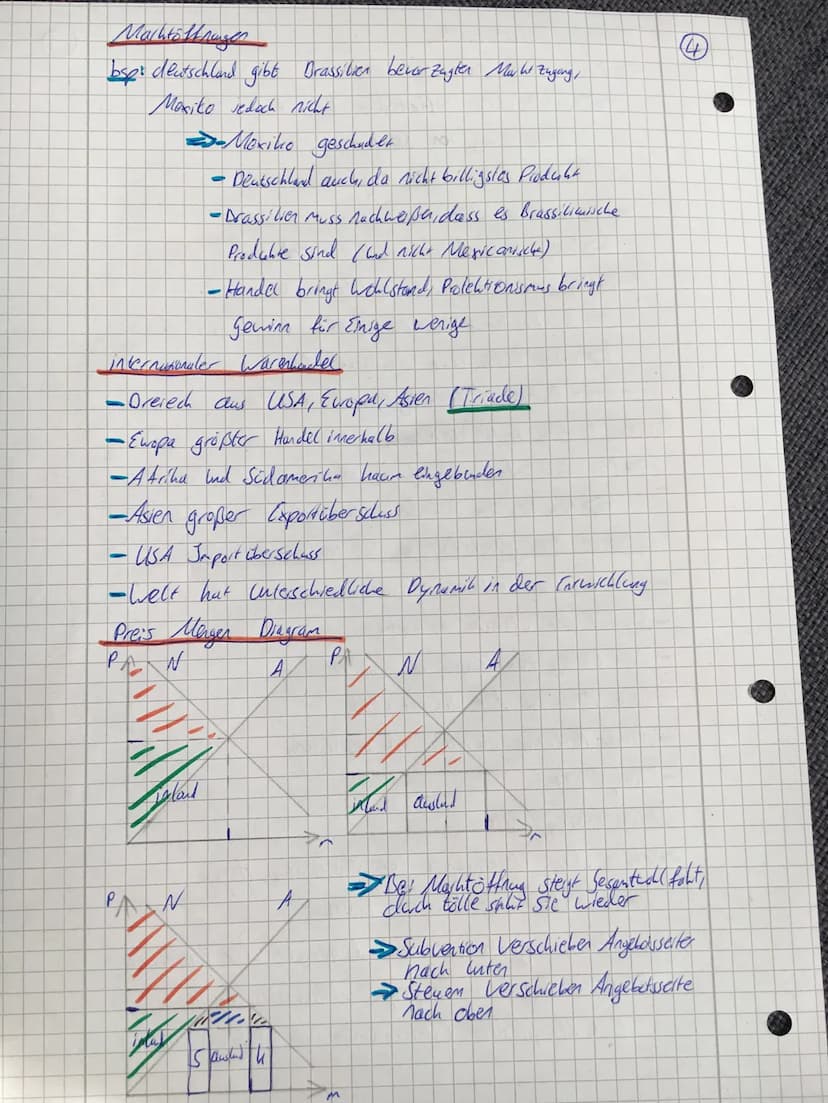 Marktöffnungen
④
bsp: deutschland gibt Brassilien bevorzugten Marktzugang,
Mexiko jedoch nicht
⇒ - Mexiko geschadet
- Deutschland auch, da nicht billigstes Produkt
- Brassilien muss nachweißen, dass es Brassilianische
Produkte sind (und nicht Mexicanische)
- Handel bringt Wohlstand, Protektionismus bringt
Gewinn für Einige wenige
internationaler Warenhandel
- Dreieck aus USA, Europa, Asien (Triade)
- Europa größter Handel innerhalb
- Afrika und Südamerika kaum eingebunden
- Asien großer Exportüberschuss
- USA Importüberschuss
- Welt hat unterschiedliche Dynamik in der Entwicklung
Preis Mengen Diagram
P N A
inland
m
P N A
inland ausland
m
P N A
inland 5 ausland 4
m
⇒ Bei Marktöffnung steigt Gesamtwohlfaht,
duch Zölle sinkt sie wieder
⇒ Subvention verschieben Angebotsseite
nach unten
⇒ Steuern verschieben Angebotsseite
nach oben